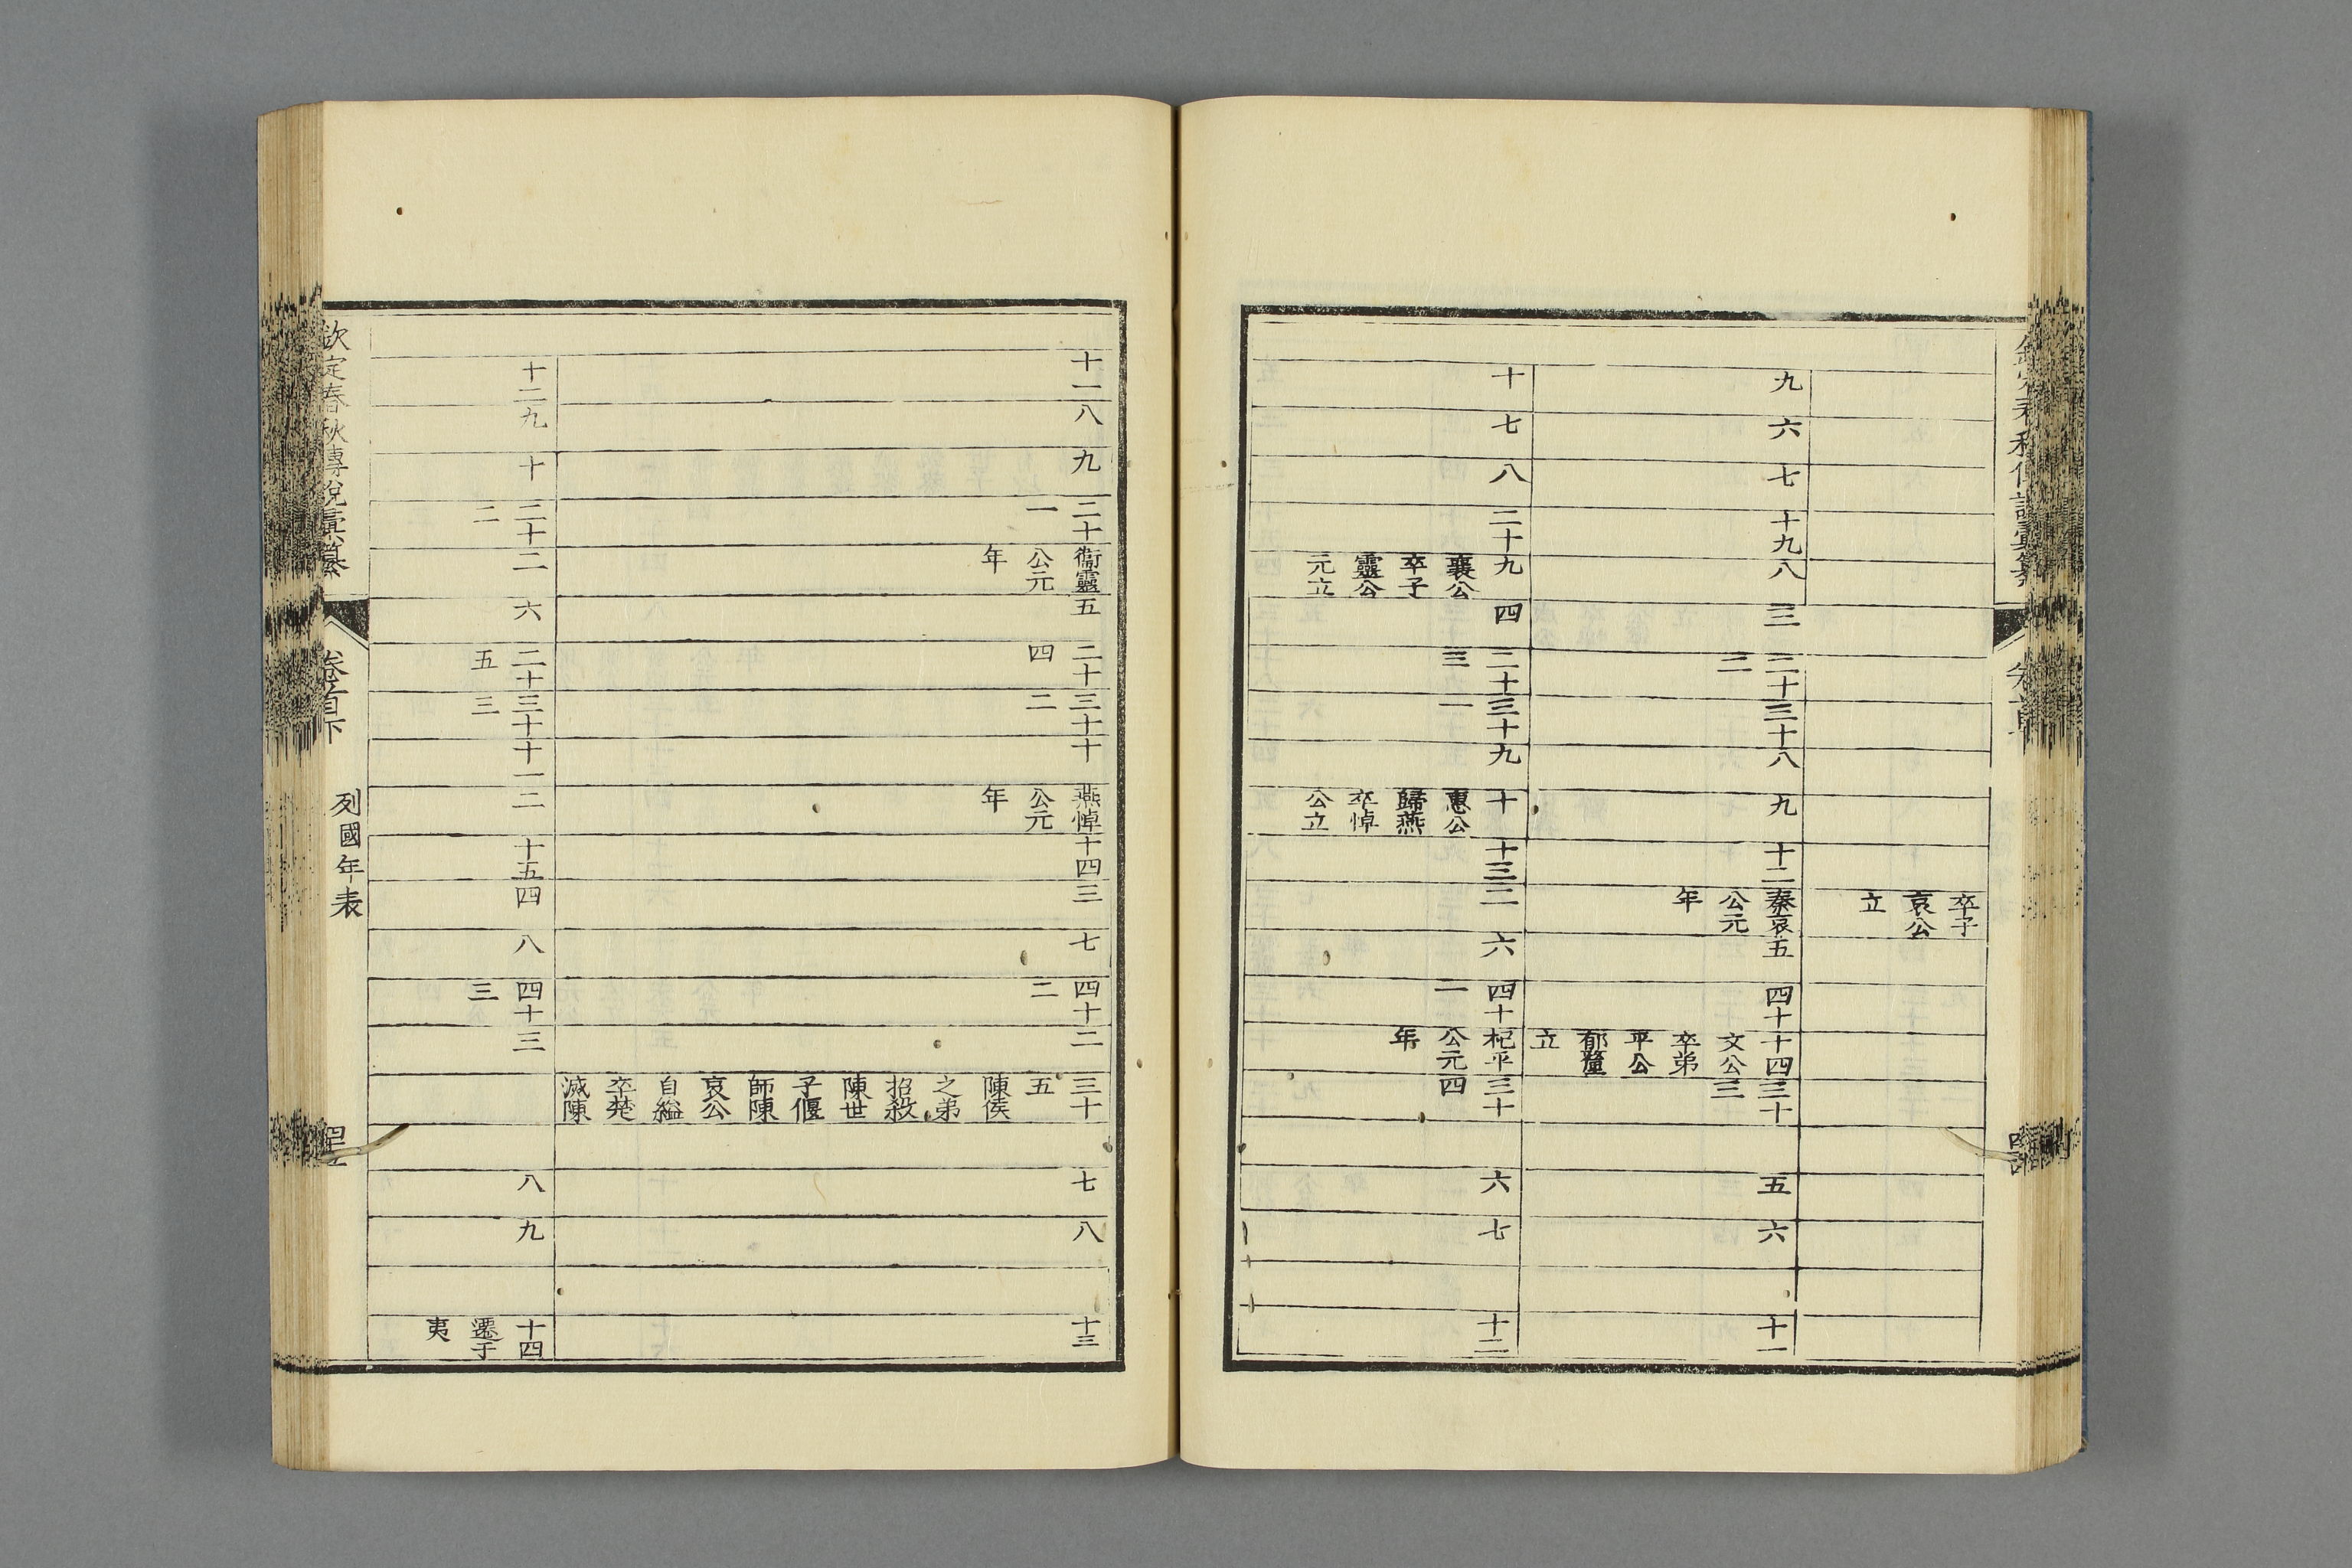 卒子
哀公
立
九
六
七
十九
八
三
二十
二
三十
八
九
十二
秦哀
公元
年
五
四十
十四
文公
卒弟
平公
郁釐
立
三十
三
五
六
十一
十
七
八
二十
九
襄公
卒子
靈公
元立
四
二十
三
三十
一
九
十
惠公
歸燕
卒悼
公立
十三
二
六
四十
一
杞平
公元
年
三十
四
六
七
十二
十一
八
九
二十
一
衞靈
公元
年
五
二十
四
三十
二
十
燕悼
公元
年
十四
三
七
四十
二
二
三十
五
陳侯
之弟
招殺
陳世
子偃
師陳
哀公
自縊
卒楚
滅陳
七
八
十三
十二
九
十
二十
二
二
六
二十
五
三十
三
十一
二
十五
四
八
四十
三
三
八
九
十四
遷于
夷
欽定春秋傳說彙纂
卷首下
列國年表